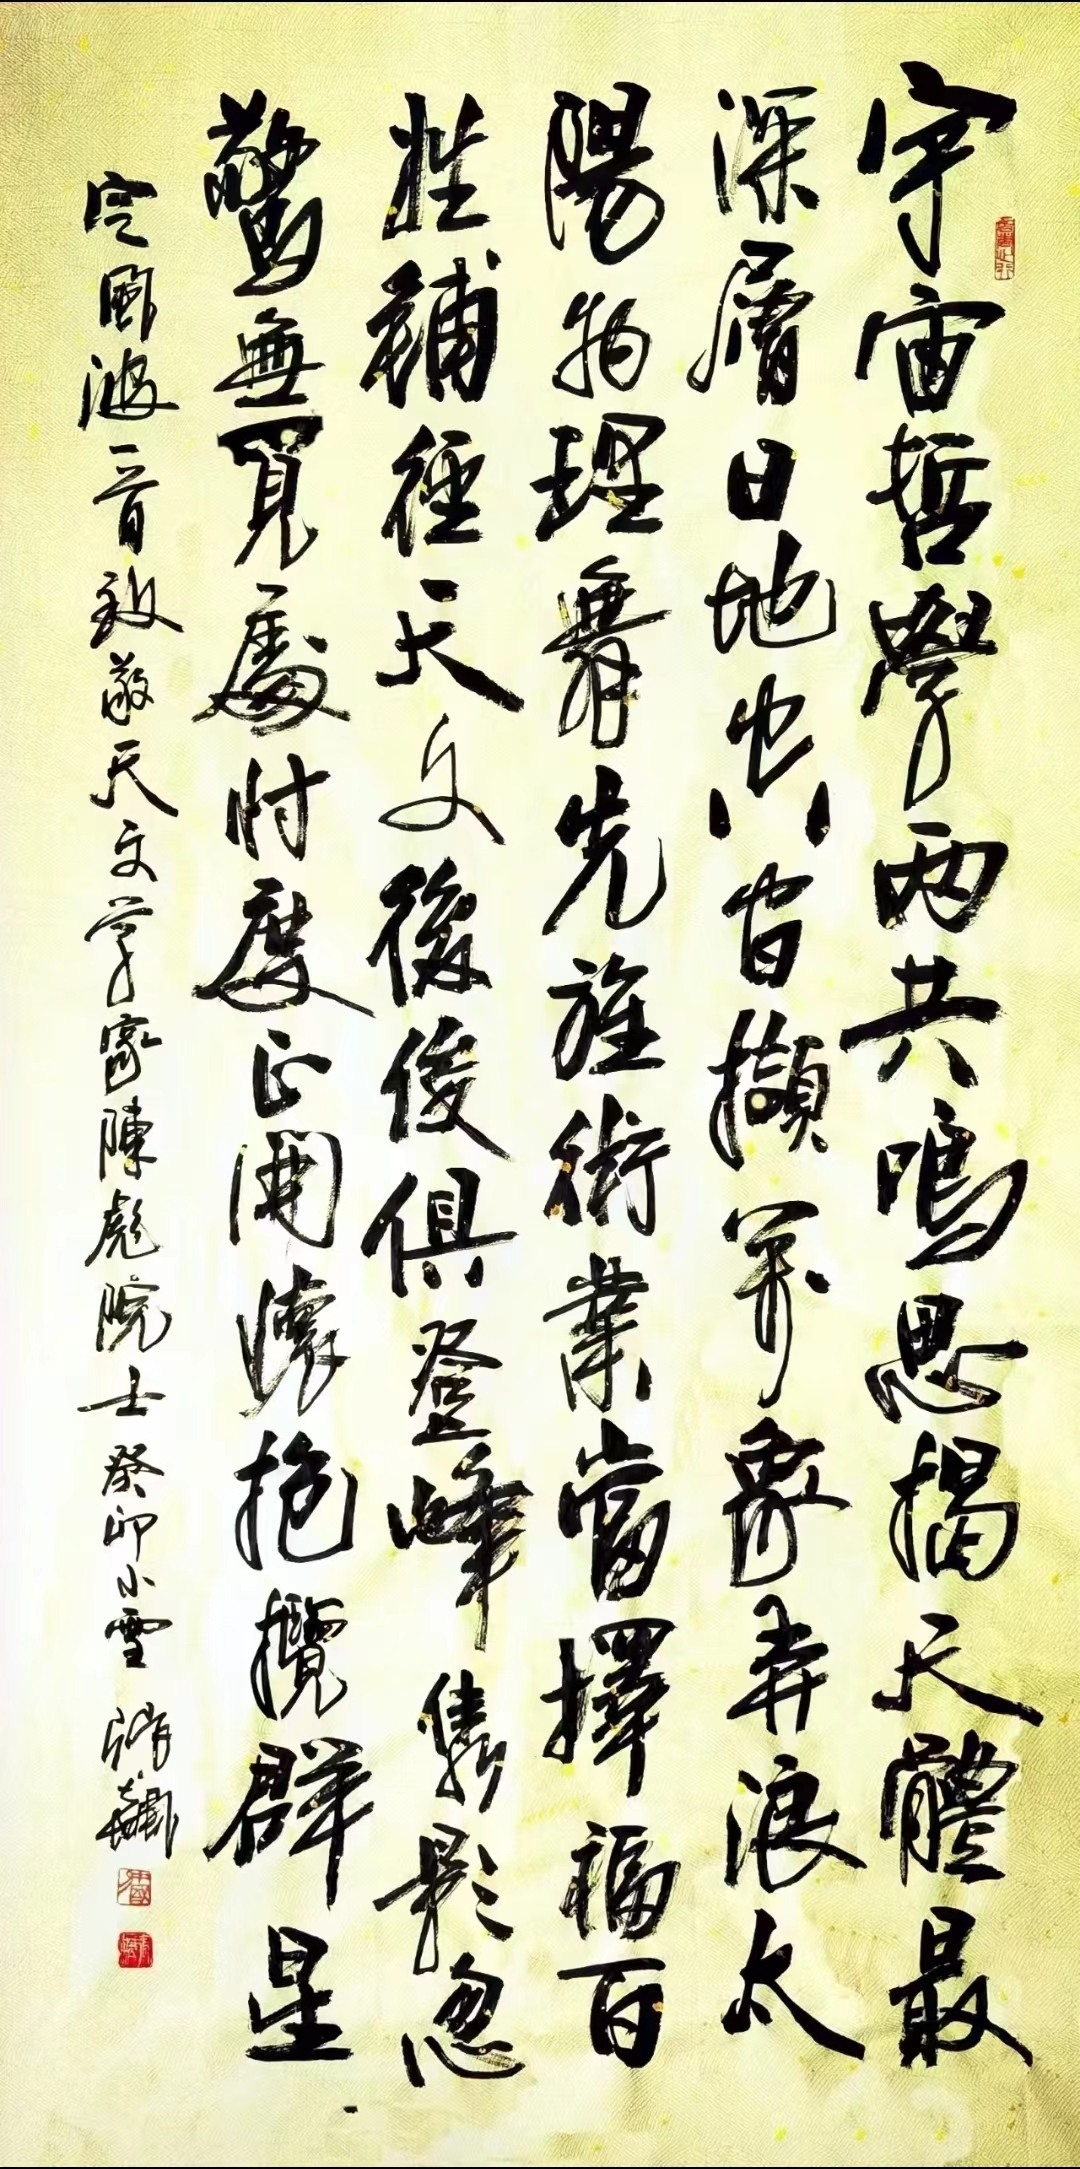 宇宙哲學兩共鳴思揭天體最
深層日地擷萬象弄浪太
陽物理舞先旌術業當擇福百
姓補徑天文後俊俱登峰影忽
驚無覓處忖度正開懷抱攬群星
定風波一首致敬天文学家陳彪院士癸卯小雪